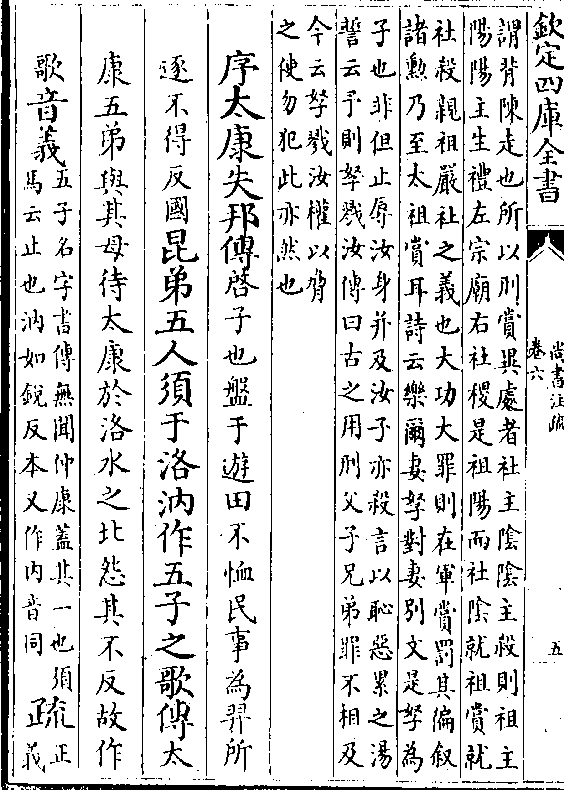 欽定四庫全書
尚書注疏
卷六
五
謂背陳走也所以刑賞異處者社主陰陰主殺則祖主
陽陽主生禮左宗廟右社稷是祖陽而社陰就祖賞就
社殺親祖嚴社之義也大功大罪則在軍賞罰其徧叙
諸勲乃至太祖賞耳詩云樂爾妻孥對妻別文是孥為
子也非但止辱汝身并及汝子亦殺言以恥惡累之湯
誓云予則孥戮汝傳曰古之用刑父子兄弟罪不相及
今云孥戮汝權以脅
之使勿犯此亦然也
序太康失邦傳啓子也盤于遊田不恤民事為羿所
逐不得反國昆弟五人須于洛汭作五子之歌傳太
康五弟與其母待太康於洛水之北怨其不反故作
歌音義
五子名字書傳無聞仲康蓋其一也須
馬云止也汭如銳反本又作内音同
疏
正
義